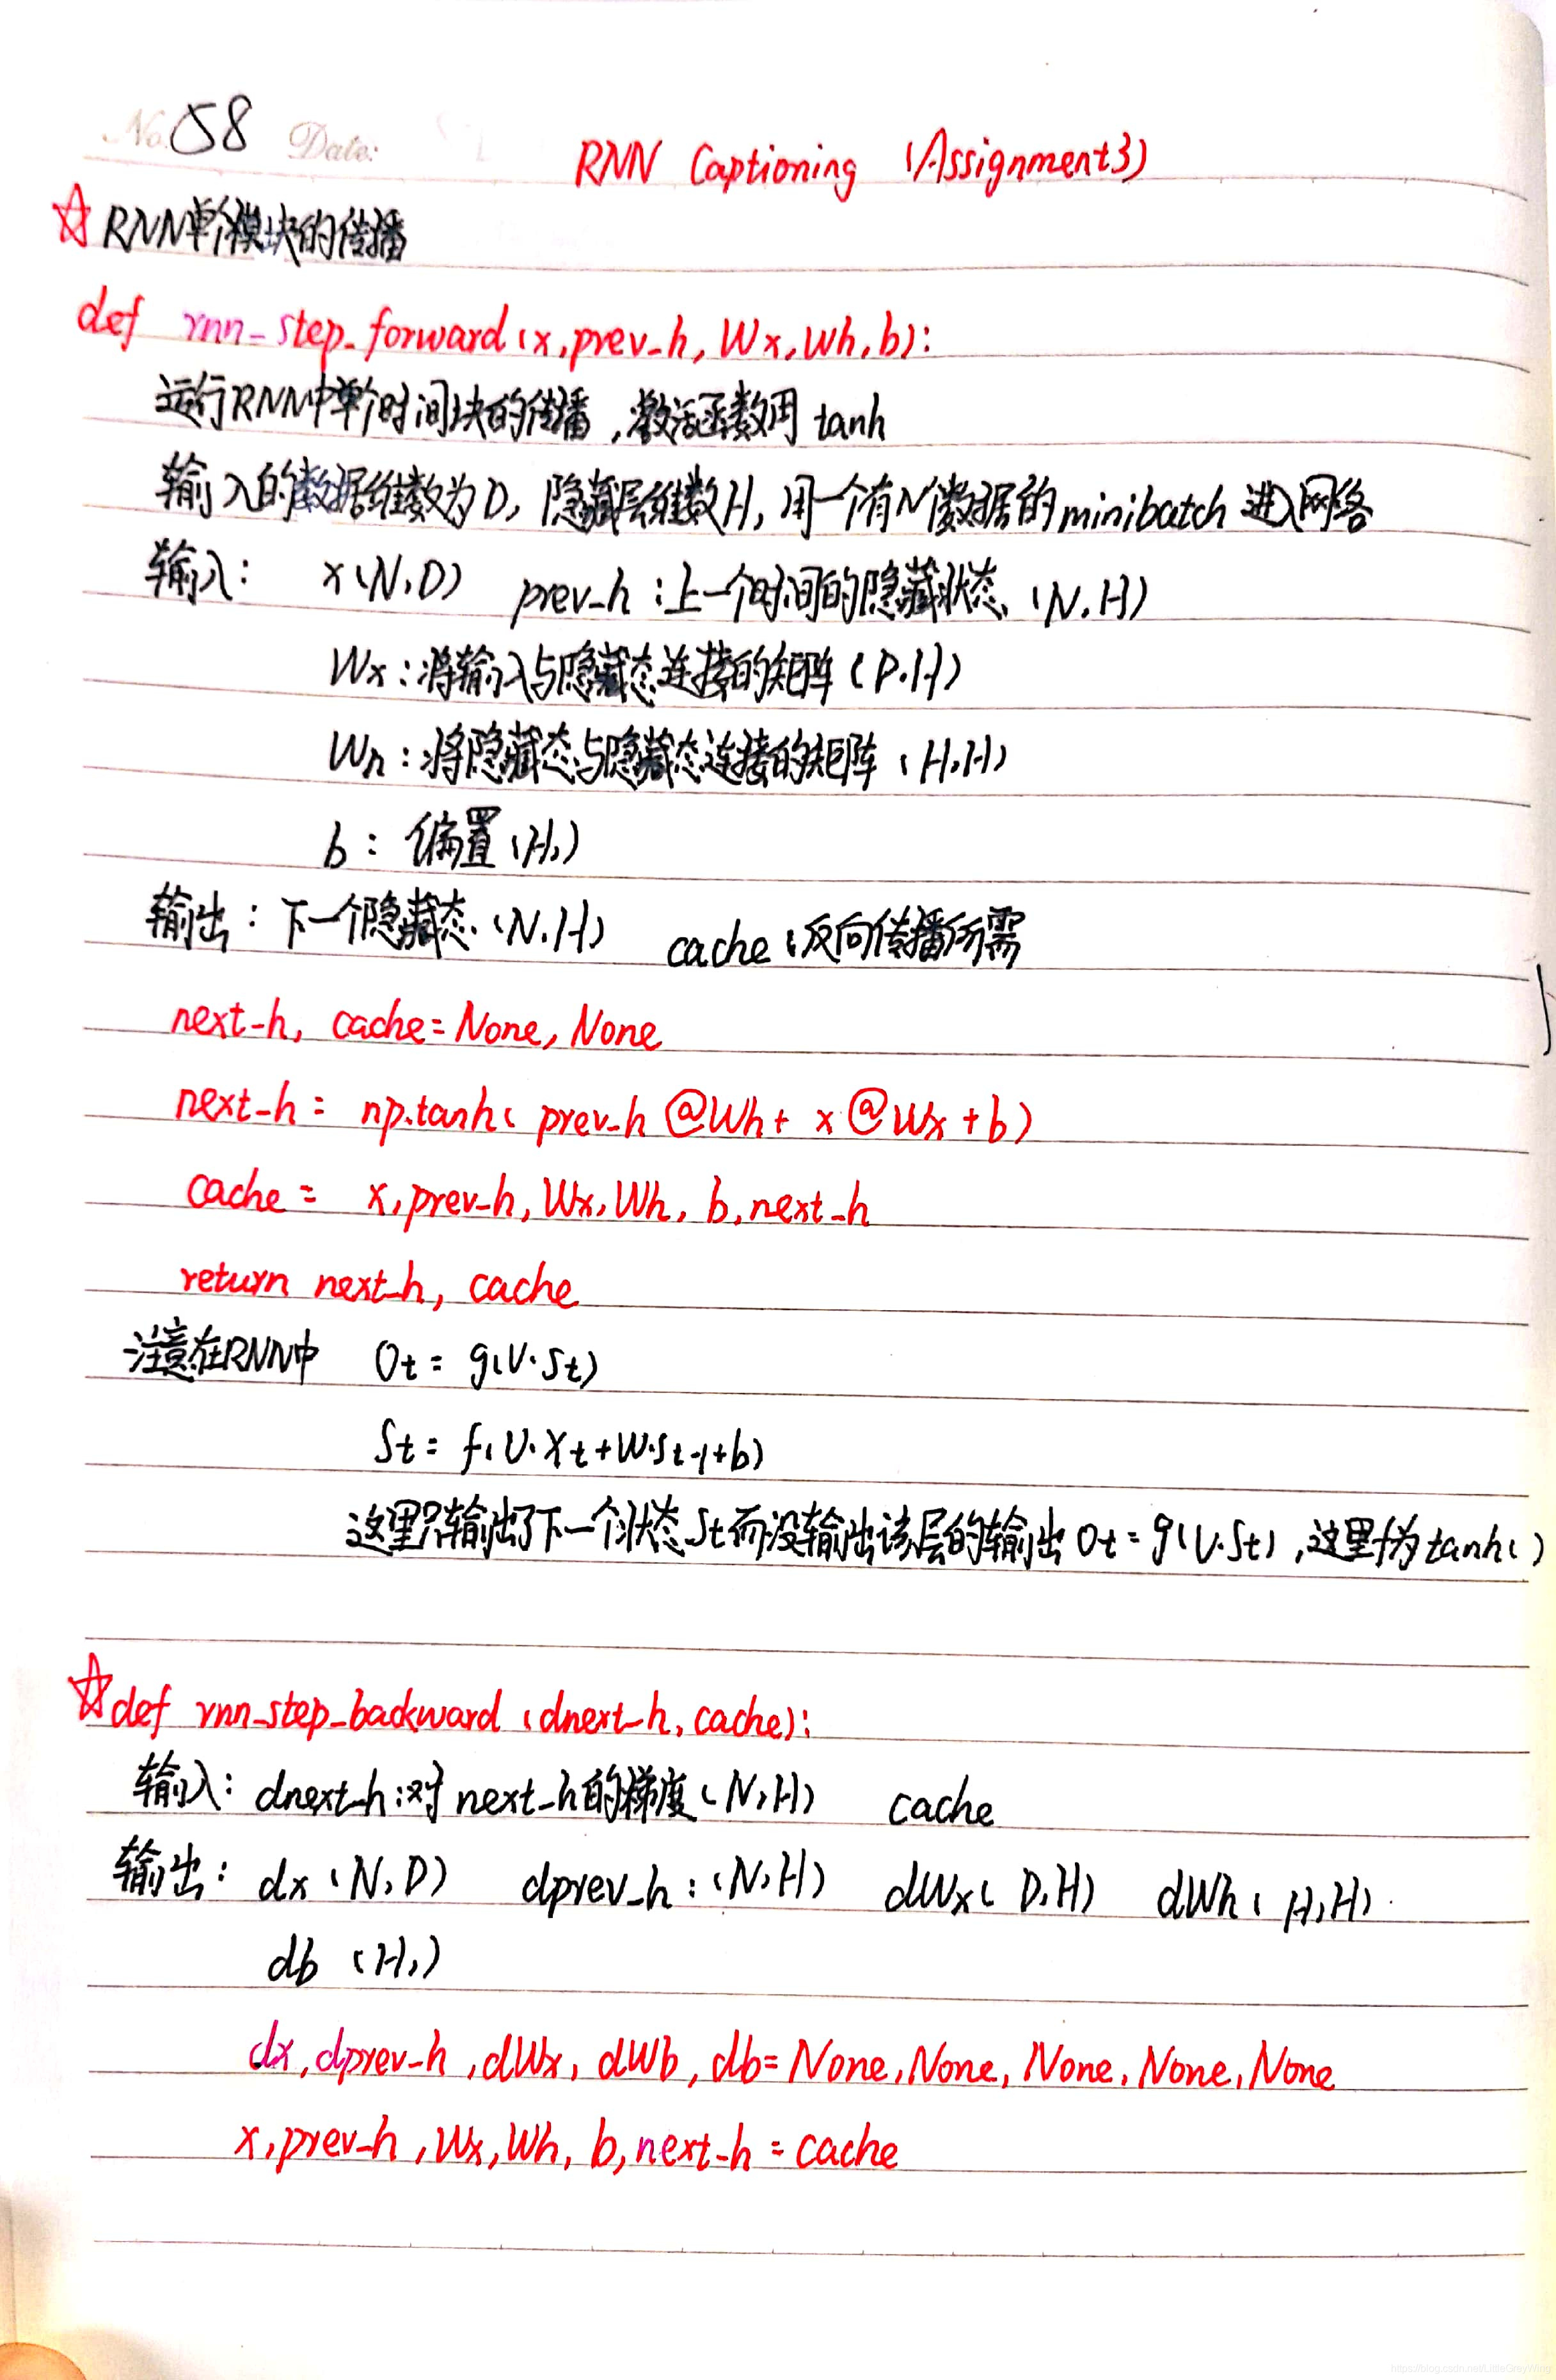 No. 58 Date:
RNN Captioning (Assignment3)
☆ RNN单个模块的传播
def rnn_step_forward(x,prev_h, Wx,Wh,b):
运行RNN中单个时间块的传播,激活函数用 tanh
输入的数据维数为D, 隐藏层维数H, 用一个有N个数据的minibatch 进入网络
输入: x(N,D) prev_h:上一个时间的隐藏状态 (N,H)
Wx:将输入与隐藏态连接的矩阵(D,H)
Wh:将隐藏态与隐藏态连接的矩阵(H,H)
b: 偏置(H,)
输出:下一个隐藏态(N,H) cache:反向传播所需
next_h, cache=None, None
next_h= np.tanh( prev_h @Wh+ x@Wx+b)
cache= x,prev_h, Wx,Wh, b,next_h
return next_h, cache
注意在RNN中 Ot=g(V·St)
St=f(U·Xt+W·St-1+b)
这里只输出了下一个状态St而没输出该层的输出Ot=g(V·St),这里f为tanh()
☆def rnn_step_backward(dnext_h,cache):
输入: dnext_h:对next_h的梯度(N,H) cache
输出: dx(N,D) dprev_h:(N,H) dWx( D,H) dWh( H,H)
db (H,)
dx,dprev_h,dWx, dWb,db=None,None,None,None,None
x,prev_h,Wx,Wh, b,next_h=cache